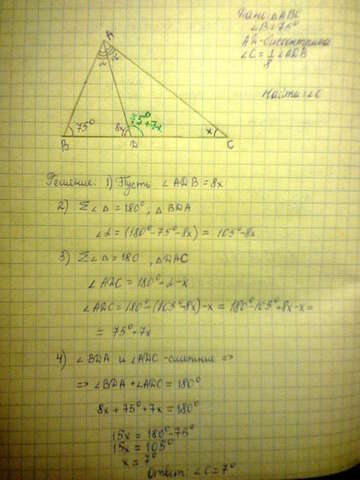 Дано: △ABC
∠B = 75°
AD - биссектриса
∠C = 1/8 ∠ADB
Найти: ∠C
A
α α
75°
8x
75° + 7x
x
B D C
Решение: 1) Пусть ∠ADB = 8x
2) Σ∠Δ = 180°, Δ BDA
∠α = (180° - 75° - 8x) = 105° - 8x
3) Σ∠Δ = 180, Δ DAC
∠ADC = 180° - α - x
∠ADC = 180° - (105° - 8x) - x = 180° - 105° + 8x - x =
= 75° + 7x
4) ∠BDA и ∠ADC - смежные =>
=> ∠BDA + ∠ADC = 180°
8x + 75° + 7x = 180°
15x = 180° - 75°
15x = 105°
x = 7°
Ответ: ∠C = 7°